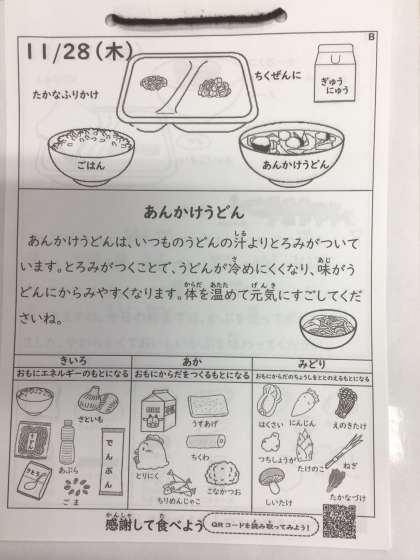 B
11/28(木)
たかなふりかけ
ちくぜんに
ぎゅう
にゅう
ごはん
あんかけうどん
あんかけうどん
あんかけうどんは、いつものうどんの汁よりとろみがついて
しる
います。とろみがつくことで、うどんが冷めにくくなり、味がう
さ
あじ
どんにからみやすくなります。体を温めて元気にすごしてくだ
からだ
あたた
げんき
さいね。
きいろ
おもにエネルギーのもとになる
さといも
あぶら
でんぷん
ごま
あか
おもにからだをつくるもとになる
うすあげ
ちくわ
とりにく
こなかつお
ちりめんじゃこ
みどり
おもにからだのちょうしをととのえるもとになる
はくさい
にんじん
えのきたけ
つちしょうが
たけのこ
ねぎ
しいたけ
たかなづけ
かんしゃ
た
感謝して食べよう
QRコードを読み取ってみよう!